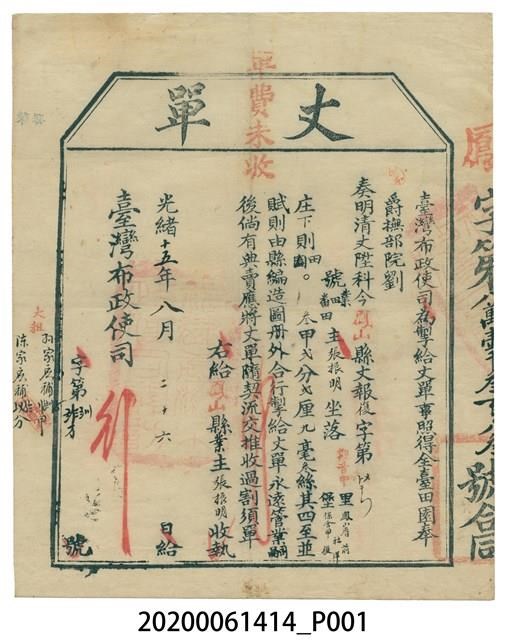 丈單
單費未收
臺灣布政使司為掣給丈單事照得全臺田園奉
爵撫部院劉
奏明清丈陞科今鳳山縣丈報復字第
號業主張振明坐落里堡
庄下則田。叁甲弍分弍厘九毫叁絲其四至並
賦則由縣編造圖冊外合行掣給丈單永遠管業嗣
後倘有典賣應將丈單隨契流交推收過割須單
右給鳳山縣業主張振明收執
光緒十五年八月二十六日給
臺灣布政使司
字第
號
大租
鳳
字第
號合同
20200061414_P001